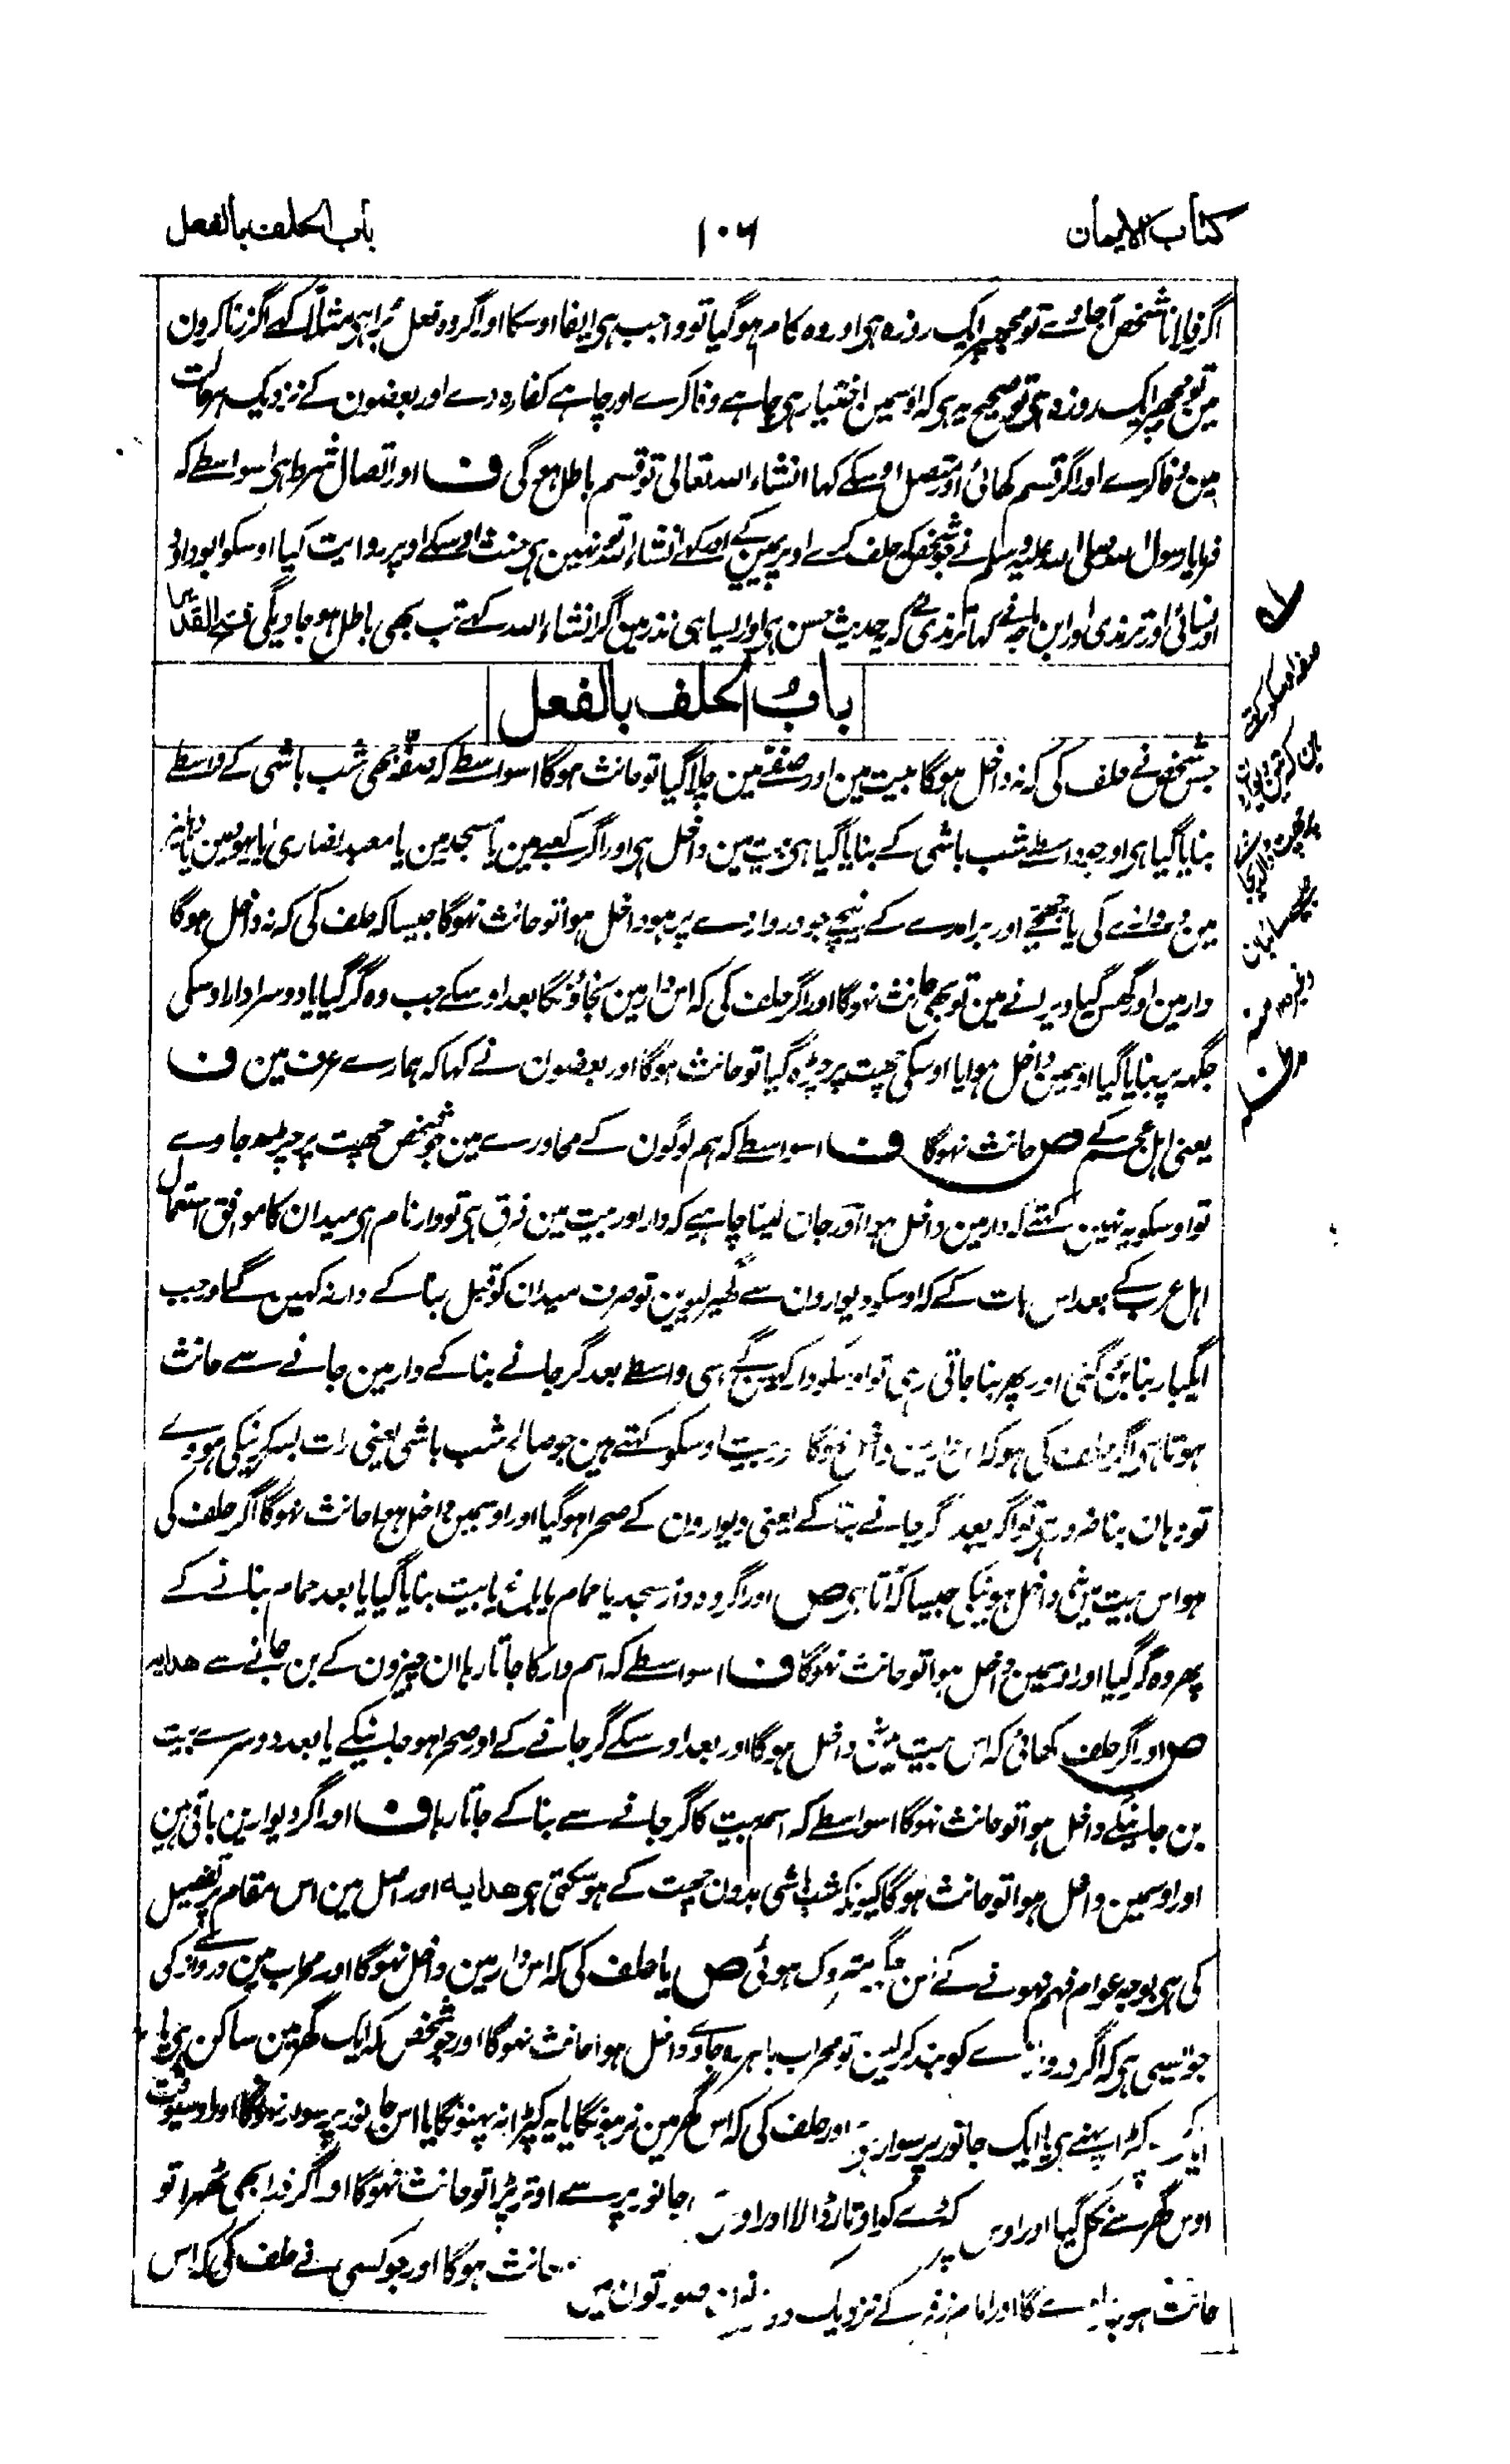 کتاب الایمان
۱۰۶
باب الحلف بالفعل
اگر فلانا شخص آجاوے تو مجھپر ایک روزہ ہی اور وہ کام ہوگیا تو واجب ہی ایفا اوسکا اور اگر وہ فعل بُرا ہی مثلاً کہے اگر زنا کرون
تو مجھپر ایک روزہ ہی تو صحیح یہ ہی کہ اوسمین اختیار ہی چاہے وفا کرے اور چاہے کفارہ دے اور بعضون کے نزدیک ہر حالت
مین وفا کرے اور اگر قسم کھائی اور متصل اوسکے کہا انشاء اللہ تعالی تو قسم باطل ہوگی ف اور اتصال شرط ہی اسواسطے کہ
فرمایا رسول اللہ صلی اللہ علیہ وسلم نے جو شخص کہ حلف کرے اوپر یمین کے اور کہے انشاء اللہ تو نہین ہی حنث اوسکے اوپر روایت کیا اوسکو ابو داؤد
اور نسائی اور ترمذی اور ابن ماجہ نے کہا ترمذی نے کہ یہ حدیث حسن ہی اور ایسا ہی نذر مین اگر انشاء اللہ کہے تب بھی باطل ہو جاویگی فتح القدیر
باب الحلف بالفعل
جس شخص نے حلف کی کہ نہ داخل ہوگا بیت مین اور صفے مین چلا گیا تو حانث ہوگا اسواسطے کہ صفّہ بھی شب باشی کے واسطے
بنایا گیا ہی اور جو واسطے شب باشی کے بنایا گیا ہی بیت مین داخل ہی اور اگر کعبے مین یا مسجد مین یا معبد نصاری یا یہود مین یا دہلیز
مین دروازے کی یا چھجے اور برامدے کے نیچے جو دروازے پر ہو داخل ہوا تو حانث نہوگا جیسا کہ حلف کی کہ نہ داخل ہوگا
دار مین اور گھس گیا ویرانے مین تو بھی حانث نہوگا اور اگر حلف کی کہ اس دار مین نجاؤنگا بعد اوسکے جب وہ گر گیا یا دوسرا دار اوسکی
جگہہ پر بنایا گیا اوسمین داخل ہوا یا اوسکی چھت پر چڑہ گیا تو حانث ہوگا اور بعضون نے کہا کہ ہمارے عرف مین ف
یعنی اہل عجم کے ص حانث نہوگا ف اسواسطے کہ ہم لوگون کے محاورے مین جو شخص چھت پر چڑھ جاوے
تو اوسکو یہ نہین کہتے کہ دار مین داخل ہوا اور جان لینا چاہیے کہ دار اور بیت مین فرق ہی تو دار نام ہی میدان کا موافق استعمال
اہل عرب کے بعد اس بات کے کہ اوسکو دیوارون سے گھیر لیوین تو صرف میدان کو قبل بنا کے دار نہ کہین گے اور جب
ایکبار بنا بن گئی اور پھر بنا جاتی رہی تو اوسکو دار کہین گے اسی واسطے بعد گر جانے بنا کے دار مین جانے سے حانث
ہوتا ہی اگر حلف کی ہو کہ اس دار مین داخل نہوگا اور بیت اوسکو کہتے ہین جو صالح شب باشی یعنی رات بسر کرنیکی ہووے
تو وہان بنا ضرور ہی تو اگر بعد گر جانے بنا کے یعنی دیوارون کے صحرا ہوگیا اور اوسمین داخل ہوا حانث نہوگا اگر حلف کی
ہو اس بیت مین داخل ہونیکی جیسا کہ آتا ہی ص اور اگر وہ دار مسجد یا حمام یا باغ یا بیت بنایا گیا یا بعد حمام بنانے کے
پھر وہ گر گیا اور اوسمین داخل ہوا تو حانث نہوگا ف اسواسطے کہ اسم دار کا جاتا رہا ان چیزون کے بن جانے سے ھدایہ
ص اور اگر حلف کھائی کہ اس بیت مین داخل ہوگا اور بعد اوسکے گر جانے کے اور صحرا ہو جانیکے یا بعد دوسرے بیت
بن جانیکے داخل ہوا تو حانث نہوگا اسواسطے کہ اسم بیت کا گر جانے سے بنا کے جاتا رہا ف اور اگر دیوارین باقی ہین
اور اوسمین داخل ہوا تو حانث ہوگا کیونکہ شب باشی بدون چھت کے ہو سکتی ہی ھدایہ اور اصل مین اس مقام پر تفصیل
کی ہی بوجہ عوام فہم نہونے کے اس جگہ متروک ہوئی ص یا حلف کی کہ اس دار مین داخل نہوگا اور محراب مین دروازے کی
جو ایسی ہی کہ اگر دروازے کو بند کرلین تو محراب باہر رہ جاوے داخل ہوا حانث نہوگا اور جو شخص کہ ایک گھر مین ساکن ہی یا
ایک کپڑا پہنے ہی یا ایک جانور پر سوار ہی اور حلف کی کہ اس گھر مین نرہونگا یا یہ کپڑا نہ پہنونگا یا اس جانور پر سوار نہونگا اور اوسیوقت
اوس گھر سے نکل گیا اور اوس کپڑے کو اوتار ڈالا اور اوس جانور پر سے اوتر پڑا تو حانث نہوگا اور اگر ذرا بھی ٹھہرا تو
حانث ہو جاوے گا اور امام زفر کے نزدیک دونون صورتون مین حانث ہوگا اور جو کسی نے حلف کی کہ اس